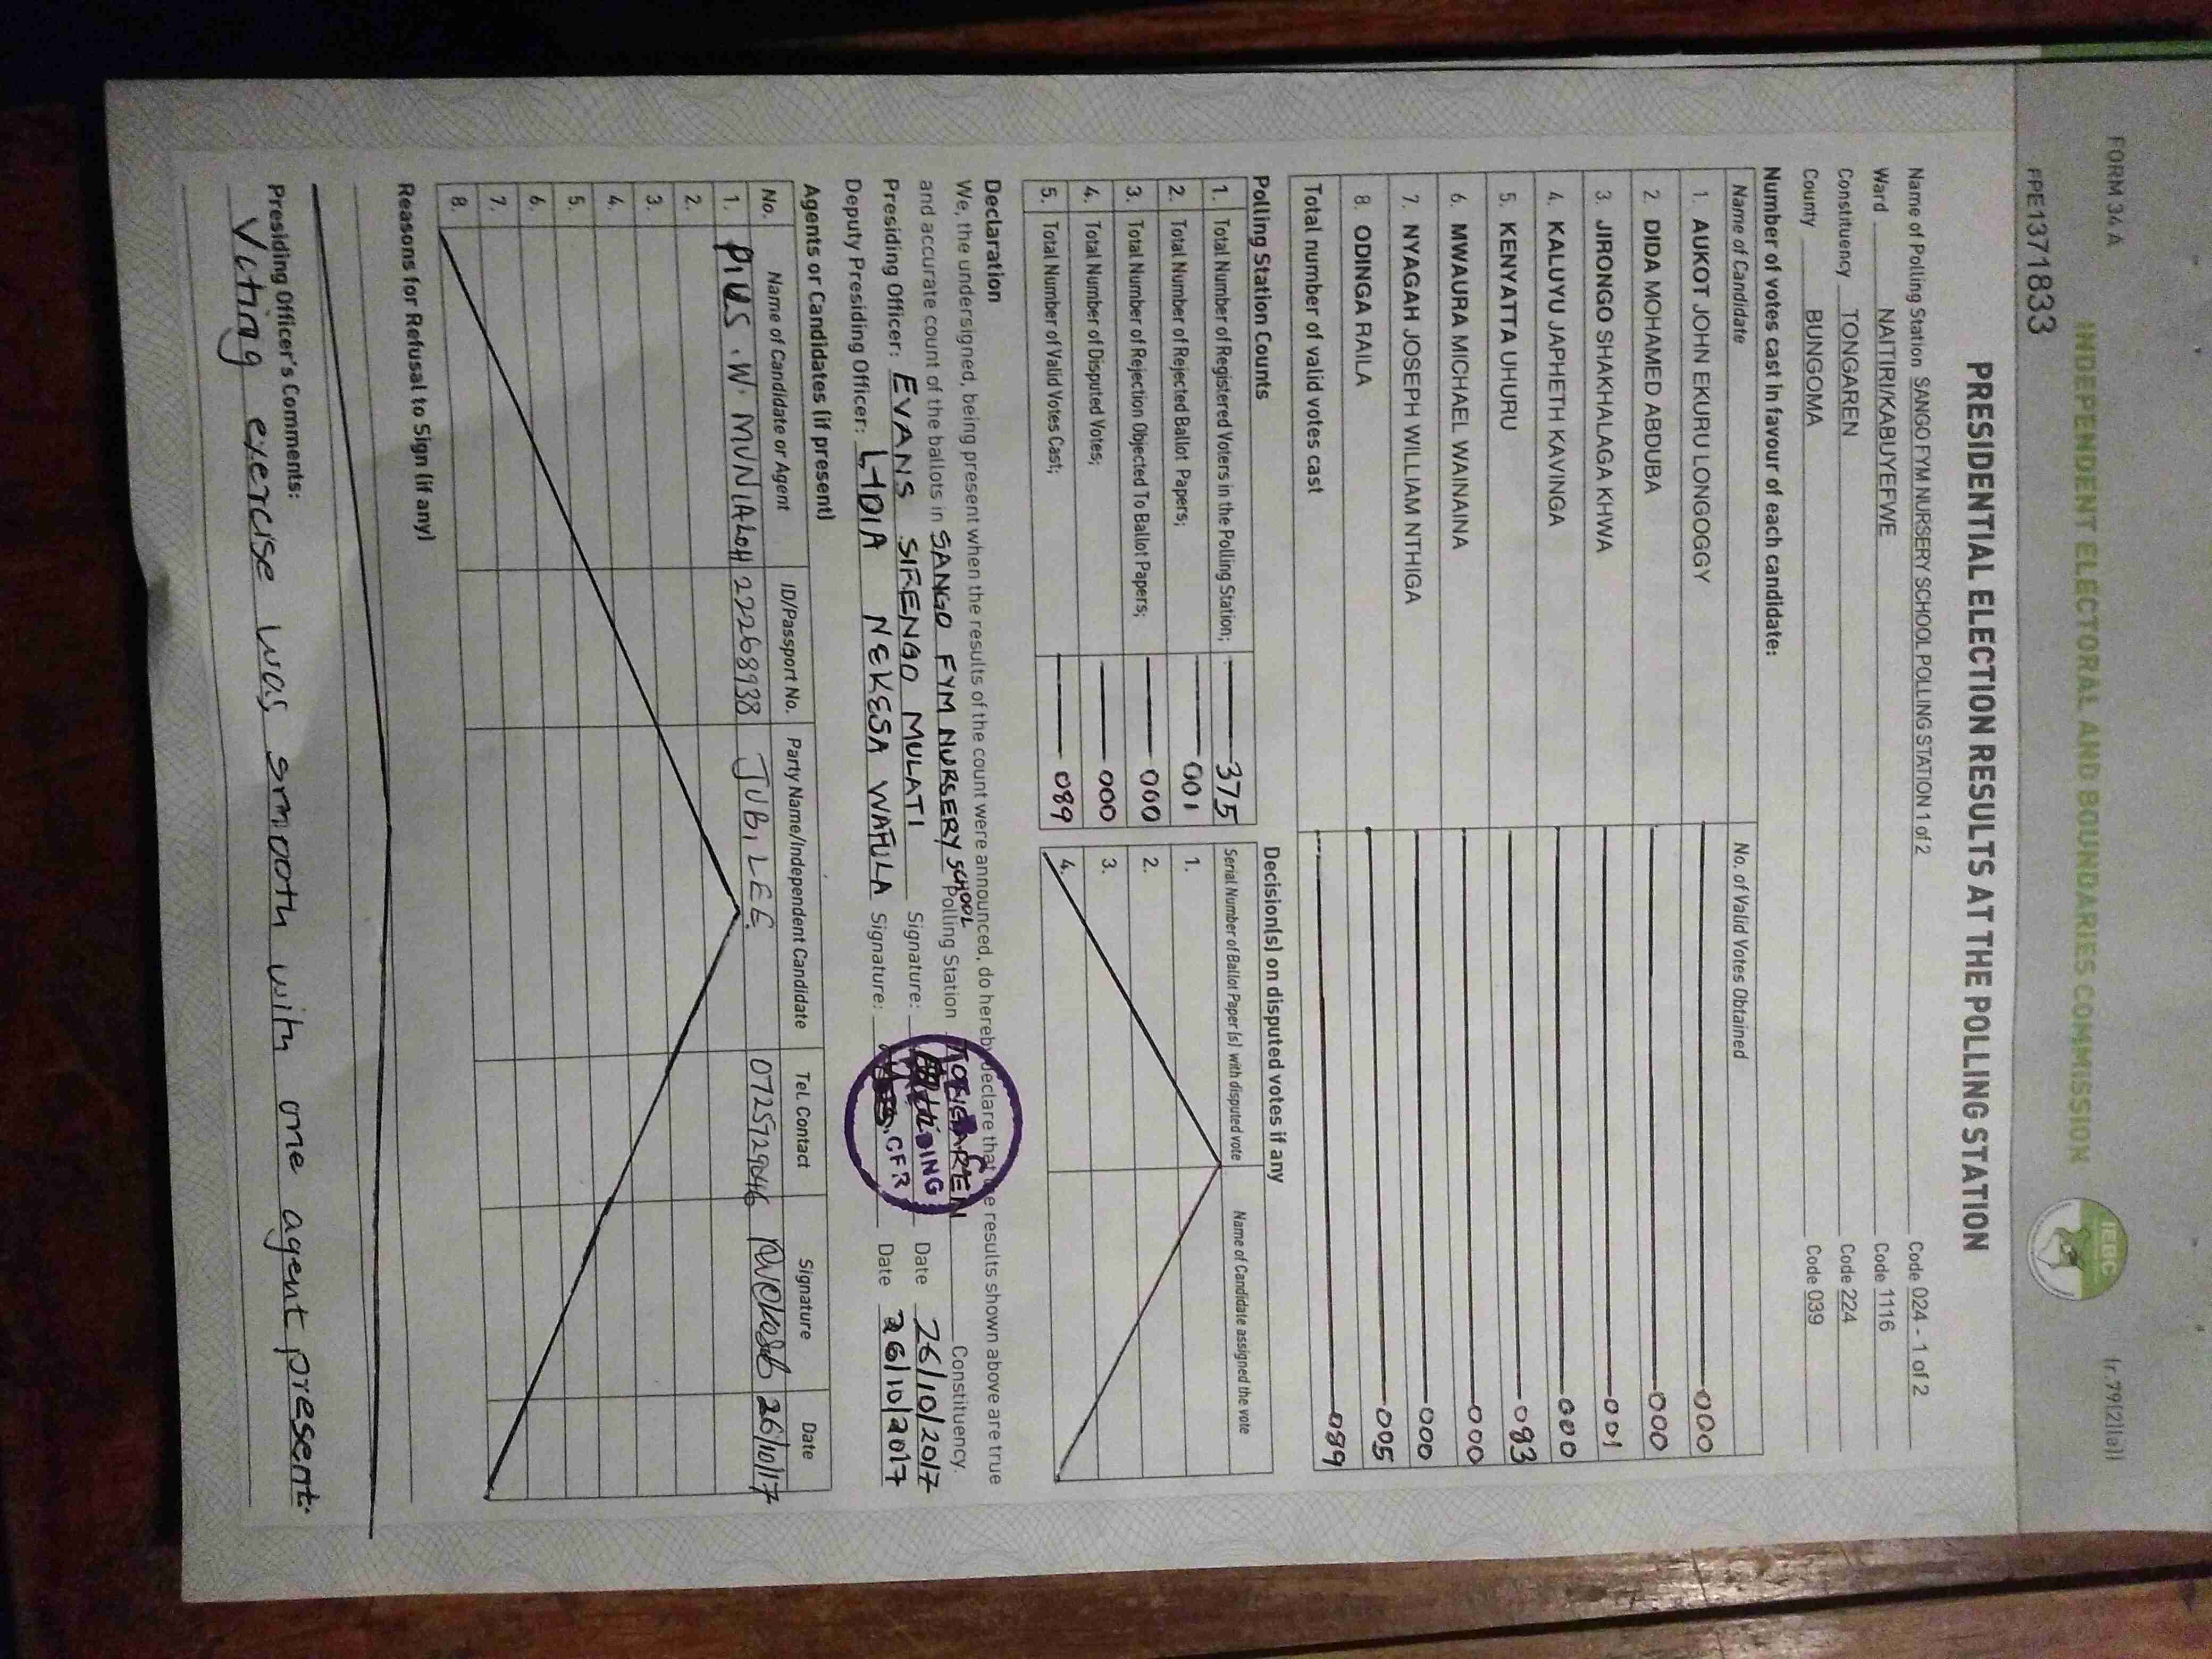 FORM 34 A
(r.79(2)(a))
INDEPENDENT ELECTORAL AND BOUNDARIES COMMISSION
IEBC
PRESIDENTIAL ELECTION RESULTS AT THE POLLING STATION
Name of Polling Station SANGO FYM NURSERY SCHOOL POLLING STATION 1 of 2 Code 024 - 1 of 2
Ward NAITIRI/KABUYEFWE Code 1116
Constituency TONGAREN Code 224
County BUNGOMA Code 039
Number of votes cast in favour of each candidate:
Name of Candidate No. of Valid Votes Obtained
1. AUKOT JOHN EKURU LONGOGGY 000
2. DIDA MOHAMED ABDUBA 000
3. JIRONGO SHAKHALAGA KHWA 001
4. KALUYU JAPHETH KAVINGA 000
5. KENYATTA UHURU 083
6. MWAURA MICHAEL WAINAINA 000
7. NYAGAH JOSEPH WILLIAM NTHIGA 000
8. ODINGA RAILA 005
Total number of valid votes cast 089
Polling Station Counts
1. Total Number of Registered Voters in the Polling Station; 375
2. Total Number of Rejected Ballot Papers; 001
3. Total Number of Rejection Objected To Ballot Papers; 000
4. Total Number of Disputed Votes; 000
5. Total Number of Valid Votes Cast; 089
Decision(s) on disputed votes if any
Serial Number of Ballot Paper (s) with disputed vote Name of Candidate assigned the vote
1.
2.
3.
4.
Declaration
We, the undersigned, being present when the results of the count were announced, do hereby declare that the results shown above are true
and accurate count of the ballots in SANGO FYM NURSERY SCHOOL Polling Station TONGAREN Constituency.
Presiding Officer: EVANS SIRENGO MULATI Signature: Date 26/10/2017
Deputy Presiding Officer: NEKESA WAFULA Signature: Date 26/10/2017
Agents or Candidates (if present)
No. Name of Candidate or Agent ID/Passport No. Party Name/Independent Candidate Tel. Contact Signature Date
1. PIUS . W. 22268938 JUBILEE 0725729046 26/10/17
2.
3.
4.
5.
6.
7.
8.
Reasons for Refusal to Sign (if any)
Presiding Officer's Comments:
Voting exercise was smooth with one agent present.